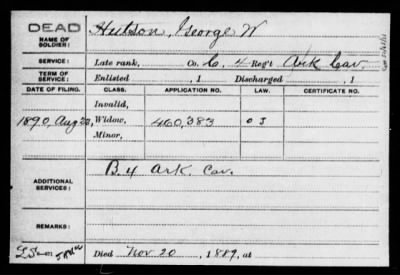 DEAD
NAME OF SOLDIER: Hutson, George W
SERVICE: Late rank, Co. C, 4 Reg't Ark Cav.
TERM OF SERVICE: Enlisted , 1 Discharged , 1
DATE OF FILING. CLASS. APPLICATION NO. LAW. CERTIFICATE NO.
Invalid,
1890, Aug 22, Widow, 460,383 O J
Minor,
ADDITIONAL SERVICES: B. 4 Ark. Cav.
REMARKS:
Died Nov 20, 1889, at